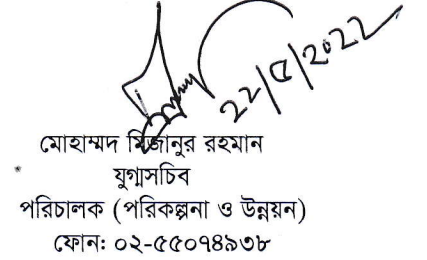 ২২/৫/২০২২
মোহাম্মদ মিজানুর রহমান
যুগ্মসচিব
পরিচালক (পরিকল্পনা ও উন্নয়ন)
ফোন: ০২-৫৫০৭৪৯৩৮